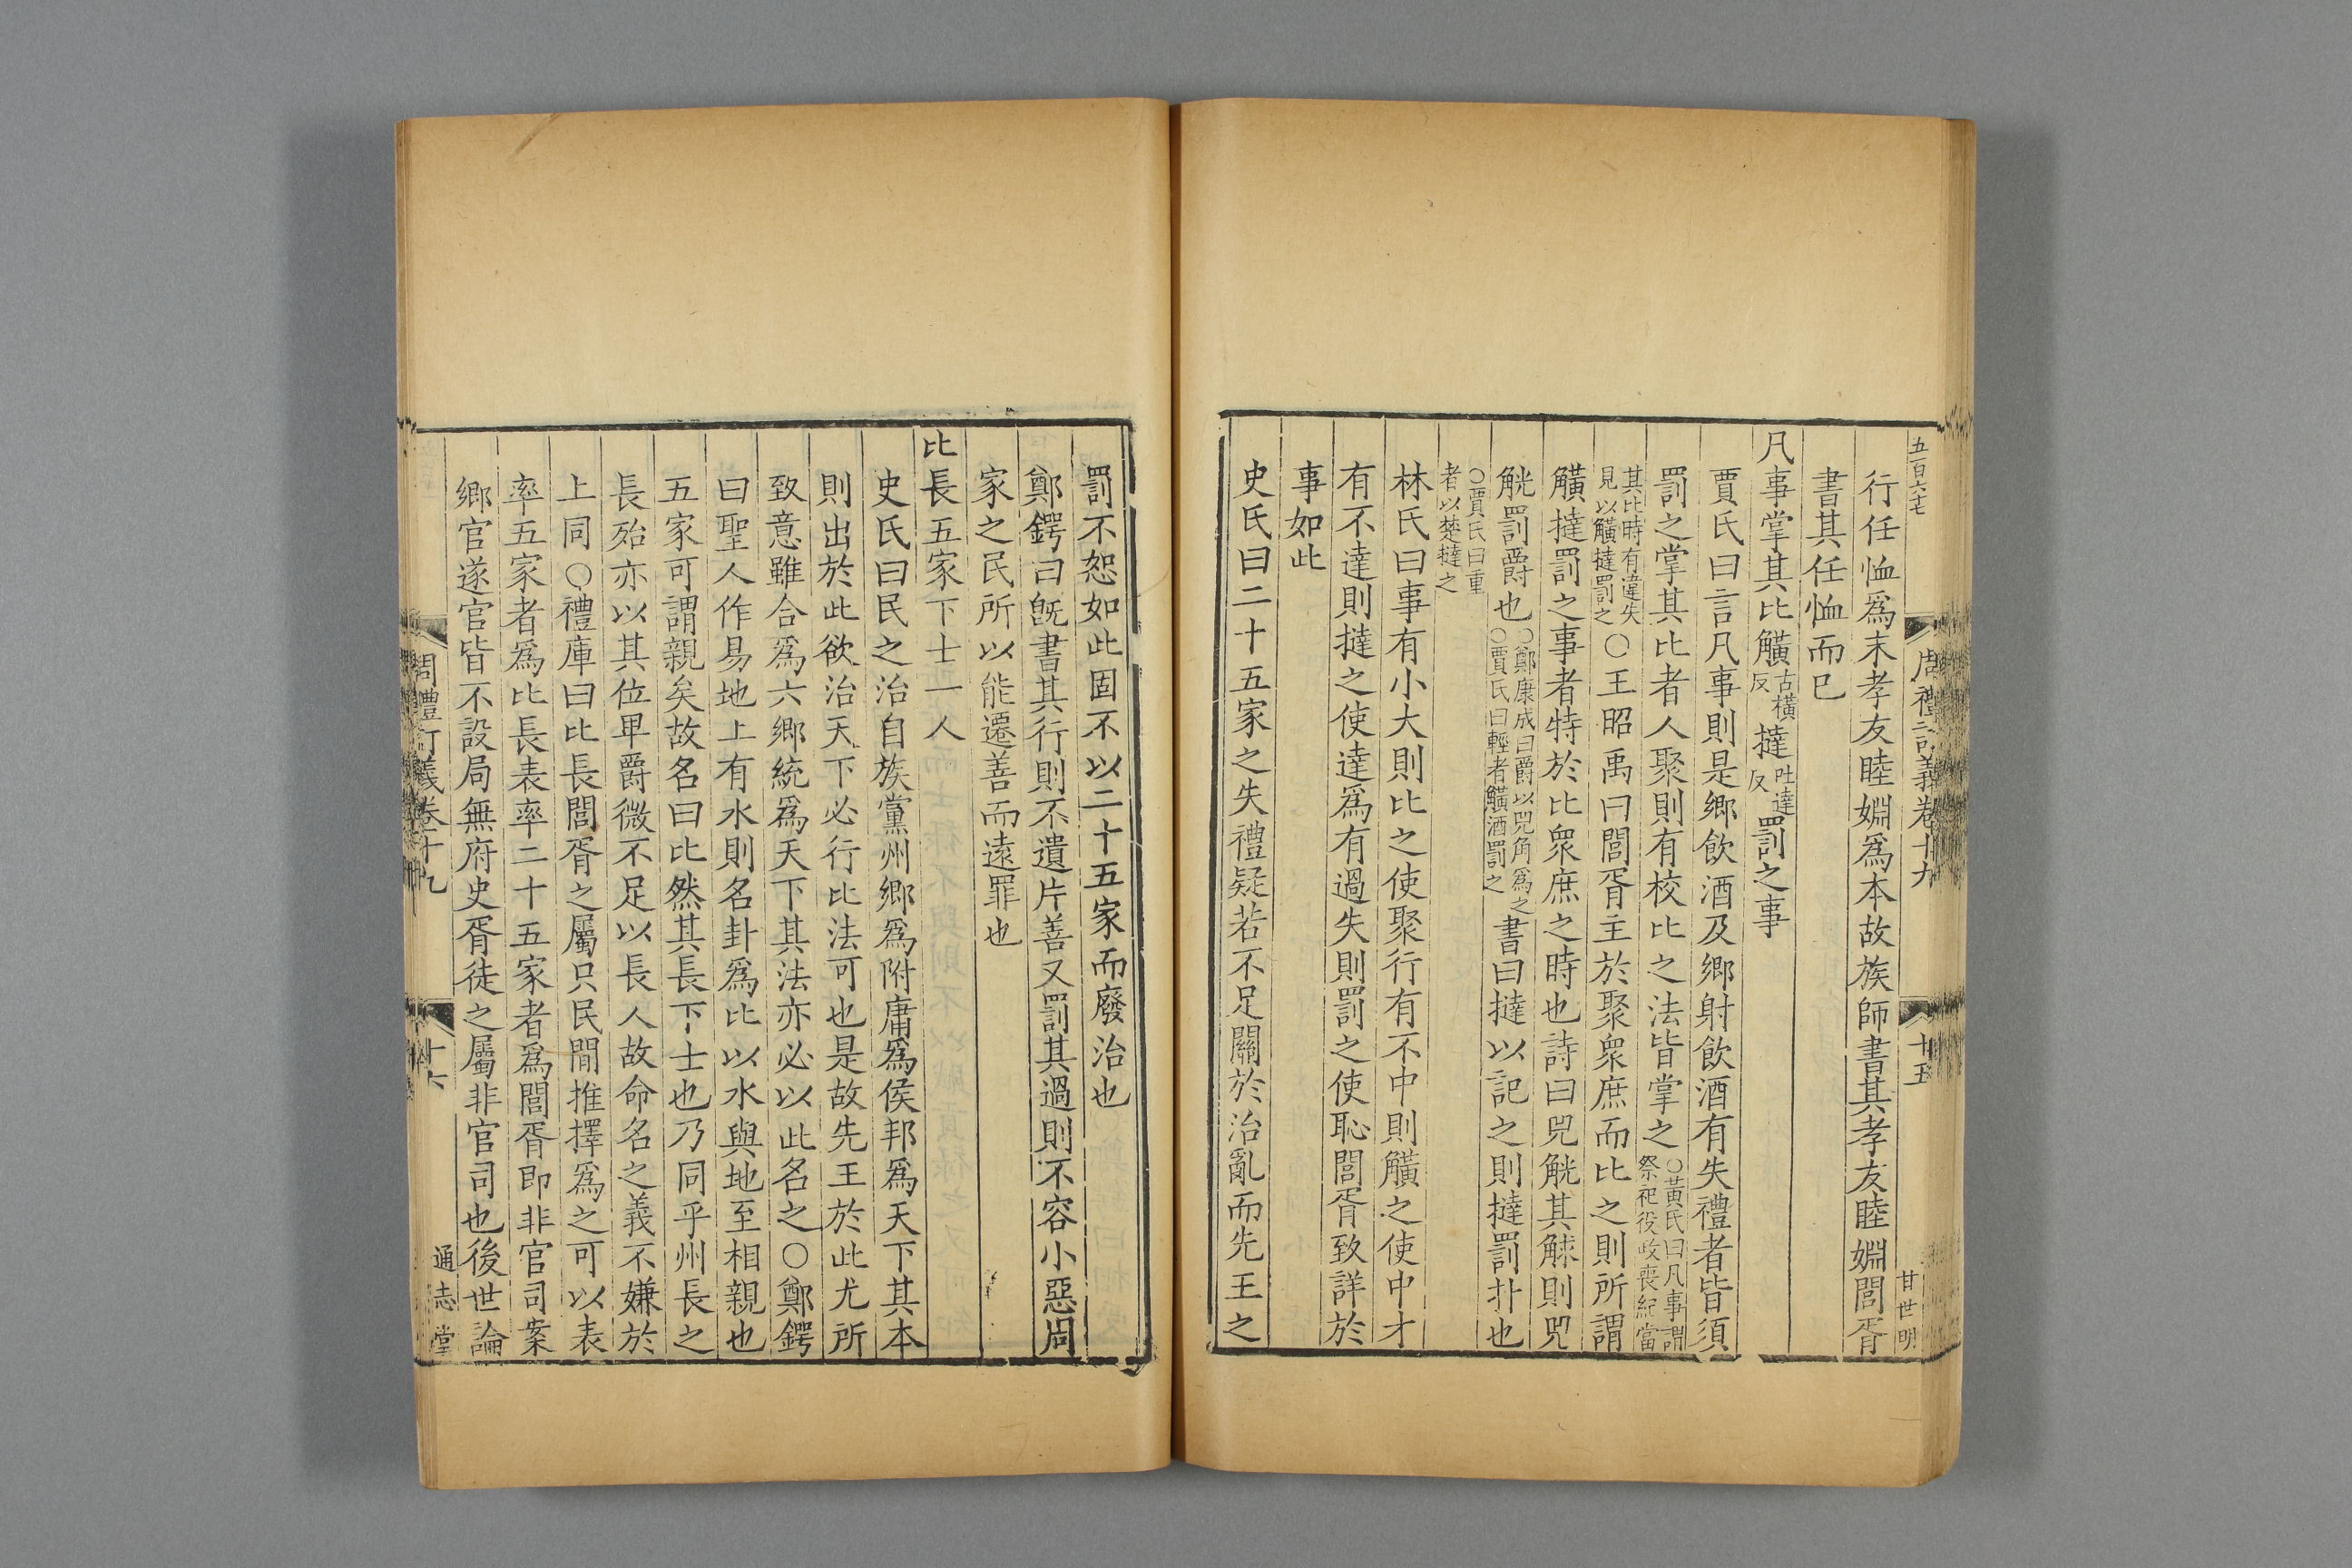 五百六七
周禮訂義卷十九
十五
甘世明
行任恤爲末孝友睦婣爲本故族師書其孝友睦婣閭胥
書其任恤而已
凡事掌其比觵古橫反撻吐達反罰之事
賈氏曰言凡事則是鄉飲酒及鄉射飲酒有失禮者皆須
罰之掌其比者人聚則有校比之法皆掌之○黃氏曰凡事謂祭祀役政喪紀當
其比時有違失見以觵撻罰之○王昭禹曰閭胥主於聚衆庶而比之則所謂
觵撻罰之事者特於比衆庶之時也詩曰兕觥其觩則兕
觥罰爵也○鄭康成曰爵以兕角爲之○賈氏曰輕者觵酒罰之書曰撻以記之則撻罰扑也
○賈氏曰重者以楚撻之
林氏曰事有小大則比之使聚行有不中則觵之使中才
有不達則撻之使達爲有過失則罰之使恥閭胥致詳於
事如此
史氏曰二十五家之失禮疑若不足關於治亂而先王之
罰不恕如此固不以二十五家而廢治也
鄭鍔曰旣書其行則不遺片善又罰其過則不容小惡周
家之民所以能遷善而遠罪也
比長五家下士一人
史氏曰民之治自族黨州鄉爲附庸爲侯邦爲天下其本
則出於此欲治天下必行比法可也是故先王於此尤所
致意雖合爲六鄉統爲天下其法亦必以此名之○鄭鍔
曰聖人作易地上有水則名卦爲比以水與地至相親也
五家可謂親矣故名曰比然其長下士也乃同乎州長之
長殆亦以其位卑爵微不足以長人故命名之義不嫌於
上同○禮庫曰比長閭胥之屬只民間推擇爲之可以表
率五家者爲比長表率二十五家者爲閭胥即非官司案
鄉官遂官皆不設局無府史胥徒之屬非官司也後世論
周禮訂義卷十九
十六
通志堂